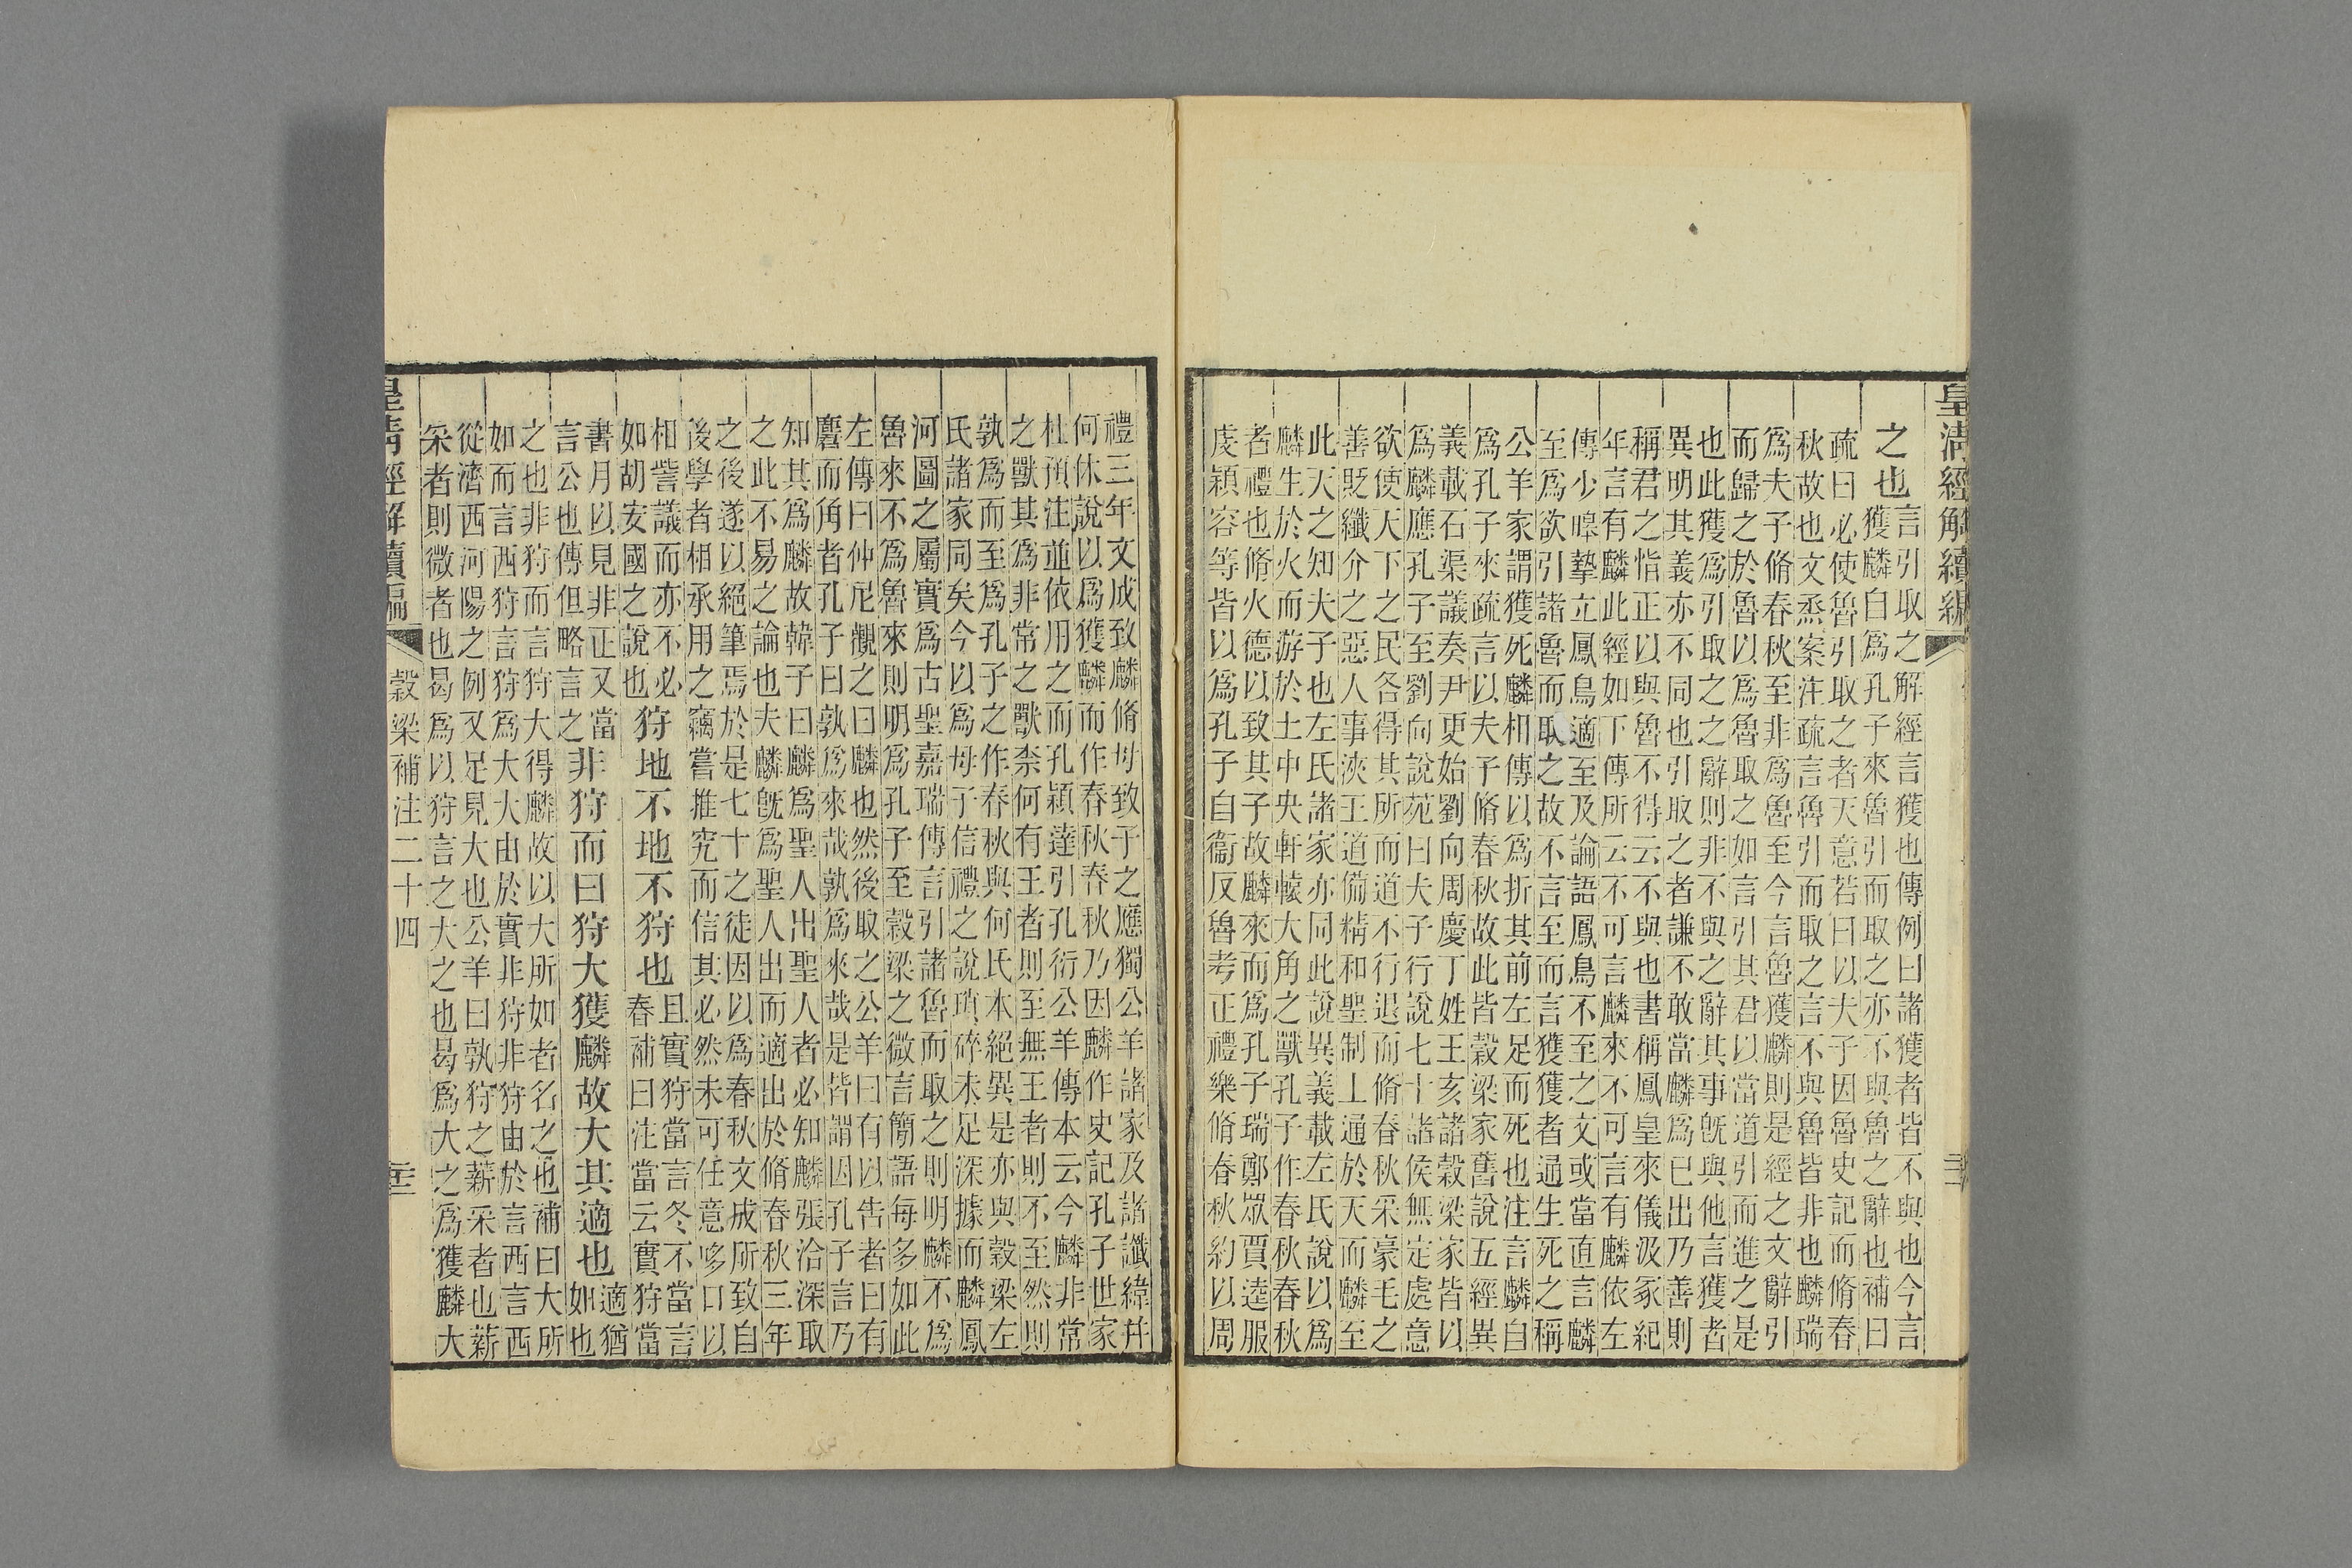 皇清經解續編
之也
言引取之解經言獲也傳例曰諸獲者皆不與也今言
獲麟自爲孔子來魯引而取之亦不與魯之辭也補曰
疏曰必使魯引取之者天意若曰以夫子因魯史記而脩春
秋故也文烝案注疏言魯引而取之言不與魯皆非也麟瑞
爲夫子脩春秋至非爲魯至今言魯獲麟則是經之文辭引
而歸之於魯以爲魯取之如言引其君以當道引而進之是
也此獲爲引取之之辭則非不與之辭其事旣與他言獲者
異明其義亦不同也引取之者謙不敢當麟爲已出乃善則
稱君之恉正以與魯不得云不與也書稱鳳皇來儀汲冢紀
年言有麟此經如下傳所云不可言麟來不可言有麟依左
傳少皞摯立鳳鳥適至及論語鳳鳥不至之文或當直言麟
至爲欲引諸魯而取之故不言至而言獲獲者通生死之稱
公羊家謂獲死麟相傳以爲折其前左足而死也注言麟自
爲孔子來疏言以夫子脩春秋故此皆穀梁家舊說五經異
義載石渠議奏尹更始劉向周慶丁姓王亥諸穀梁家皆以
爲麟應孔子至劉向說苑曰夫子行說七十諸侯無定處意
欲使天下之民各得其所而道不行退而脩春秋采豪毛之
善貶纖介之惡人事浹王道備精和聖制上通於天而麟至
此天之知夫子也左氏諸家亦同此說異義載左氏說以爲
麟生於火而游於土中央軒轅大角之獸孔子作春秋春秋
者禮也脩火德以致其子故麟來而爲孔子瑞鄭眾賈逵服
虔穎容等皆以爲孔子自衞反魯考正禮樂脩春秋約以周
禮三年文成致麟脩母致子之應獨公羊諸家及諸讖緯幷
何休說以爲獲麟而作春秋春秋乃因麟作史記孔子世家
杜預注並依用之而孔穎達引孔衍公羊傳本云今麟非常
之獸其爲非常之獸柰何有王者則至無王者則不至然則
孰爲而至爲孔子之作春秋與何氏本絕異是亦與穀梁左
氏諸家同矣今以爲母子信禮之說瑣碎未足深據而麟鳳
河圖之屬實爲古聖嘉瑞傳言引諸魯而取之則明麟不爲
魯來不爲魯來則明爲孔子至穀梁之微言簡語每多如此
左傳曰仲尼觀之曰麟也然後取之公羊曰有以告者曰有
麏而角者孔子曰孰爲來哉孰爲來哉是皆謂因孔子言乃
知其爲麟故韓子曰麟爲聖人出聖人者必知麟張洽深取
之此不易之論也夫麟旣爲聖人出而適出於脩春秋三年
之後遂以絕筆焉於是七十之徒因以爲春秋文成所致自
後學者相承用之竊嘗推究而信其必然未可任意哆口以
相訾議而亦不必
如胡安國之說也
狩地不地不狩也
且實狩當言冬不當言
春補曰注當云實狩當
書月以見非正又當
言公也傳但略言之
非狩而曰狩大獲麟故大其適也
適猶
如也
之也非狩而言狩大得麟故以大所如者名之也補曰大所
如而言西狩言狩爲大大由於實非狩非狩由於言西言西
從濟西河陽之例又足見大也公羊曰孰狩之薪采者也薪
采者則微者也曷爲以狩言之大之也曷爲大之爲獲麟大
皇清經解續編
穀梁補注二十四